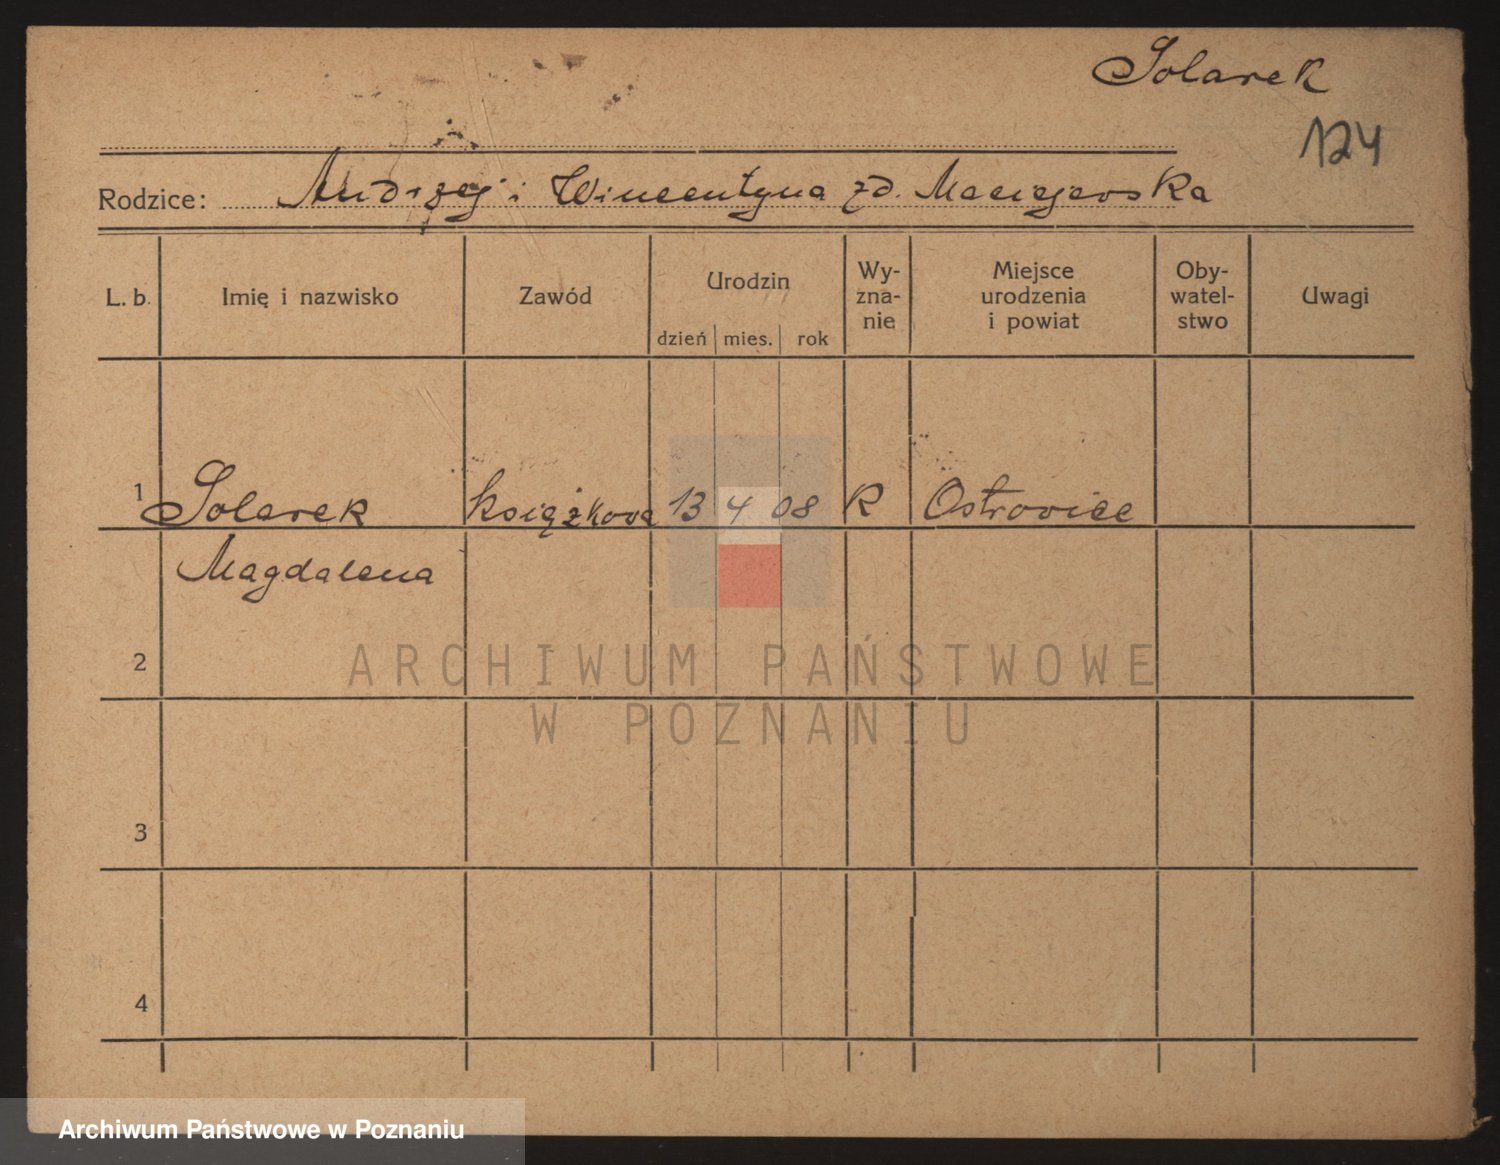 Solarek
124
Rodzice: Andrzej i Wincentyna zd. Maciejewska
L. b. Imię i nazwisko Zawód Urodzin dzień mies. rok Wy-zna-nie Miejsce urodzenia i powiat Oby-watel-stwo Uwagi
1 Solarek książkowa 13 4 08 K Ostrowiec
Magdalena
2
ARCHIWUM PAŃSTWOWE
W POZNANIU
3
4
Archiwum Państwowe w Poznaniu